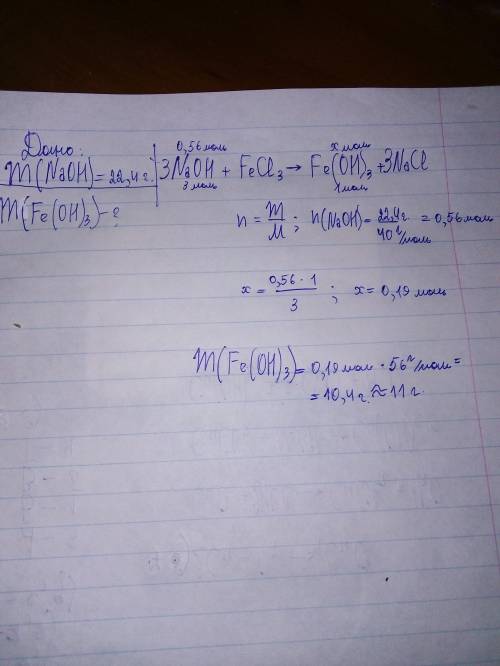 Дано:
m(NaOH)=22,4г.
m(Fe(OH)₃)-?
0,56моль х моль
3NaOH + FeCl₃ → Fe(OH)₃ + 3NaCl
3 моль 1 моль
n = m/M ; n(NaOH)= 22,4г./40 г/моль = 0,56моль
х = 0,56 · 1/3 ; х = 0,19 моль
m(Fe(OH)₃)= 0,19моль · 56 г/моль =
= 10,4 г. ≈ 11 г.